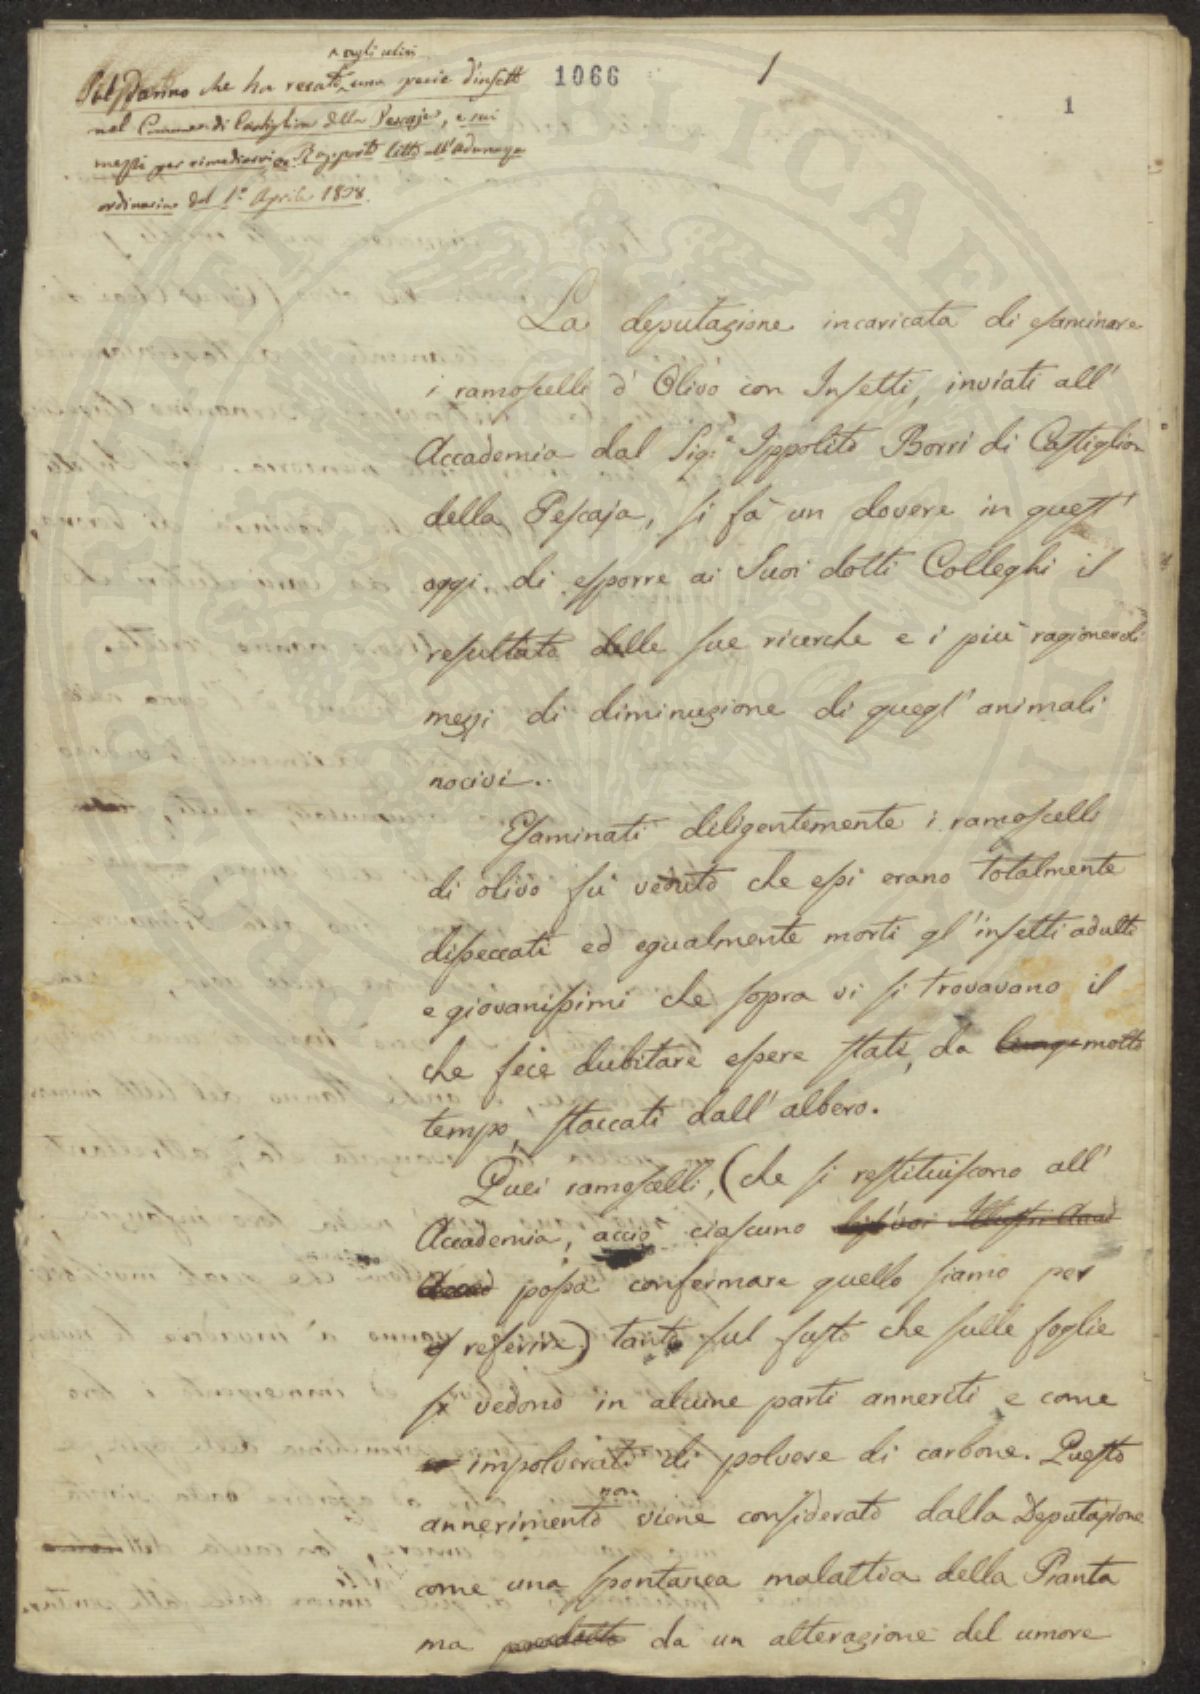 agli ulivi
Sul Danno che ha recato una specie d'insetti
nel Commune di Castiglion della Pescaja, e sui
mezzi per rimediarvi. Rapporto letto all'Adunanza
ordinaria del 1° Aprile 1828.
1066
1
1
La deputazione incaricata di esaminare
i ramoscelli d'Olivo con Insetti, inviati all'
Accademia dal Sig.e Ippolito Borri di Castiglion
della Pescaja, si fà un dovere in quest'
oggi di esporre ai Suoi dotti Colleghi il
resultato delle sue ricerche e i più ragionevoli
mezzi di diminuzione di quegl'animali
nocivi.
Esaminati diligentemente i ramoscelli
di olivo fù veduto che essi erano totalmente
disseccati ed egualmente morti gl'insetti adulti
e giovanissimi che sopra vi si trovavano il
che fece dubitare essere stati, da molto
tempo, staccati dall'albero.
Quei ramoscelli, (che si restituiscono all'
Accademia, acciò ciascuno
possa confermare quello siamo per
referire) tanto sul fusto che sulle foglie
si vedono in alcune parti anneriti e come
impolverati di polvere di carbone. Questo
annerimento non viene considerato dalla Deputazione
come una spontanea malattia della Pianta
ma prodotto da un alterazione del umore